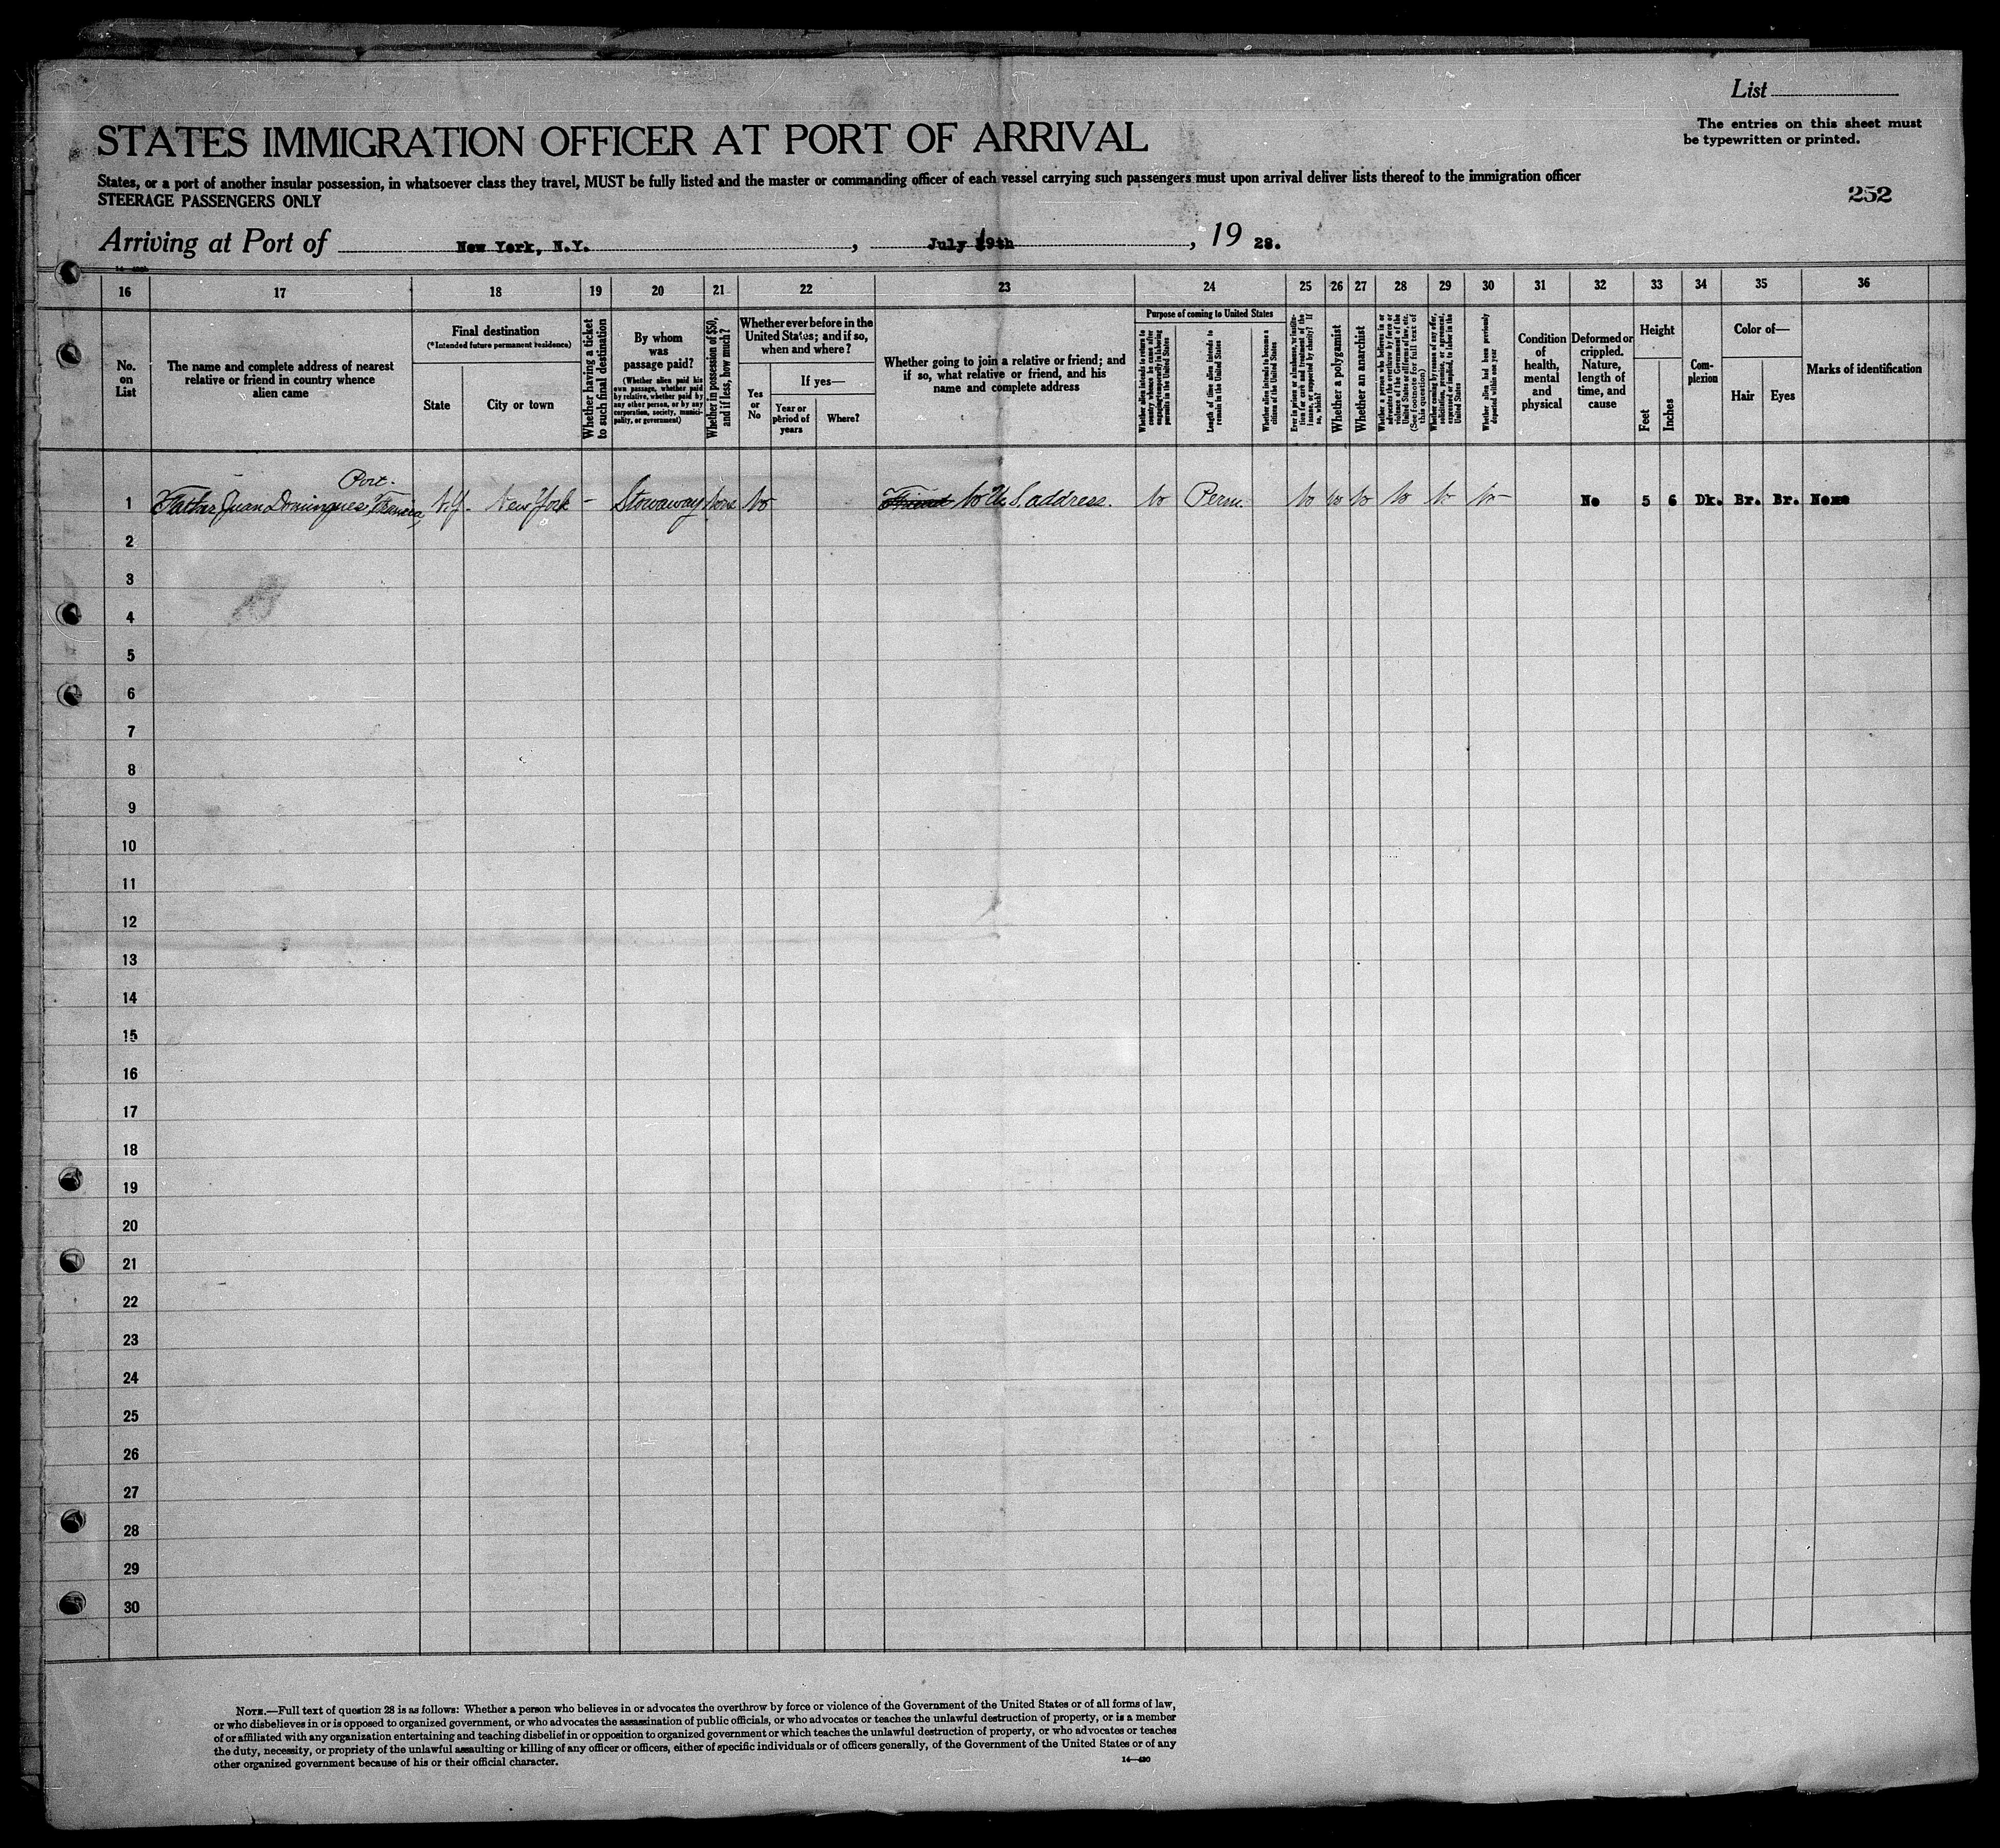 List
STATES IMMIGRATION OFFICER AT PORT OF ARRIVAL
The entries on this sheet must
be typewritten or printed.
States, or a port of another insular possession, in whatsoever class they travel, MUST be fully listed and the master or commanding officer of each vessel carrying such passengers must upon arrival deliver lists thereof to the immigration officer
STEERAGE PASSENGERS ONLY
252
Arriving at Port of New York, N.Y. , July 19th , 19 28.
16 17 18 19 20 21 22 23 24 25 26 27 28 29 30 31 32 33 34 35 36
No.
on
List
The name and complete address of nearest
relative or friend in country whence
alien came
Final destination
(*Intended future permanent residence)
State
City or town
Whether having a ticket
to such final destination
By whom
was
passage paid?
(Whether alien paid his
own passage, whether paid
by relative, whether paid by
any other person, or by any
corporation, society, munici-
pality, or government)
Whether in possession of $50,
and if less, how much?
Whether ever before in the
United States; and if so,
when and where?
Yes
or
No
If yes—
Year or
period of
years
Where?
Whether going to join a relative or friend; and
if so, what relative or friend, and his
name and complete address
Purpose of coming to United States
Whether alien intends to return to
country whence he came after
engaging temporarily in laboring
pursuits in the United States
Length of time alien intends to
remain in the United States
Whether alien intends to become a
citizen of the United States
Ever in prison or almshouse, or institu-
tion for care and treatment of the
insane, or supported by charity? If
so, which?
Whether a polygamist
Whether an anarchist
Whether a person who believes in or
advocates the overthrow by force or
violence of the Government of the
United States or all forms of law, etc.
(See footnote for full text of
this question)
Whether coming by reason of any offer,
solicitation, promise, or agreement,
expressed or implied, to labor in the
United States
Whether alien had been previously
deported within one year
Condition
of
health,
mental
and
physical
Deformed or
crippled.
Nature,
length of
time, and
cause
Height
Feet
Inches
Com-
plexion
Color of—
Hair
Eyes
Marks of identification
Port.
1 Father, Juan Domingues, N.Y. New York – Stowaway None No Friend No U.S. address. No Perm. No No No No No No – No 5 6 Dk. Br. Br. None
2
3
4
5
6
7
8
9
10
11
12
13
14
15
16
17
18
19
20
21
22
23
24
25
26
27
28
29
30
NOTE.—Full text of question 28 is as follows: Whether a person who believes in or advocates the overthrow by force or violence of the Government of the United States or of all forms of law,
or who disbelieves in or is opposed to organized government, or who advocates the assassination of public officials, or who advocates or teaches the unlawful destruction of property, or is a member
of or affiliated with any organization entertaining and teaching disbelief in or opposition to organized government or which teaches the unlawful destruction of property, or who advocates or teaches
the duty, necessity, or propriety of the unlawful assaulting or killing of any officer or officers, either of specific individuals or of officers generally, of the Government of the United States or of any
other organized government because of his or their official character.
14—430